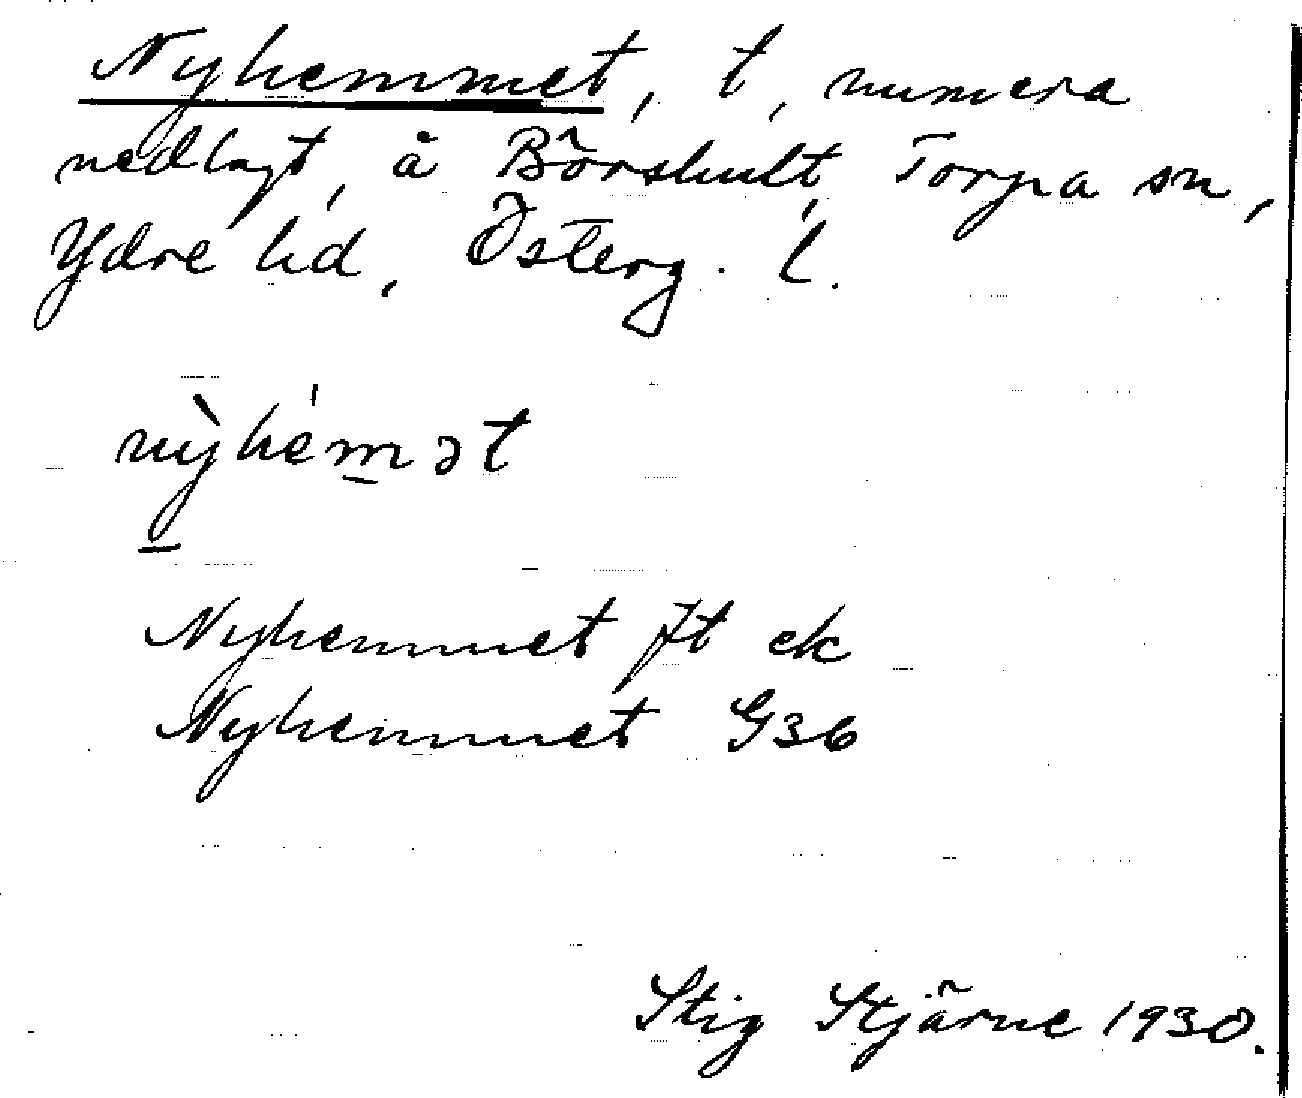 Nyhemmet, t, numera
nedlagt, å Börshult, Torpa sn,
Ydre hd, Österg. l.
nỳhém̲ət
Nyhemmet Jt ek
Nyhemmet G36
Stig Stjärne 1930.